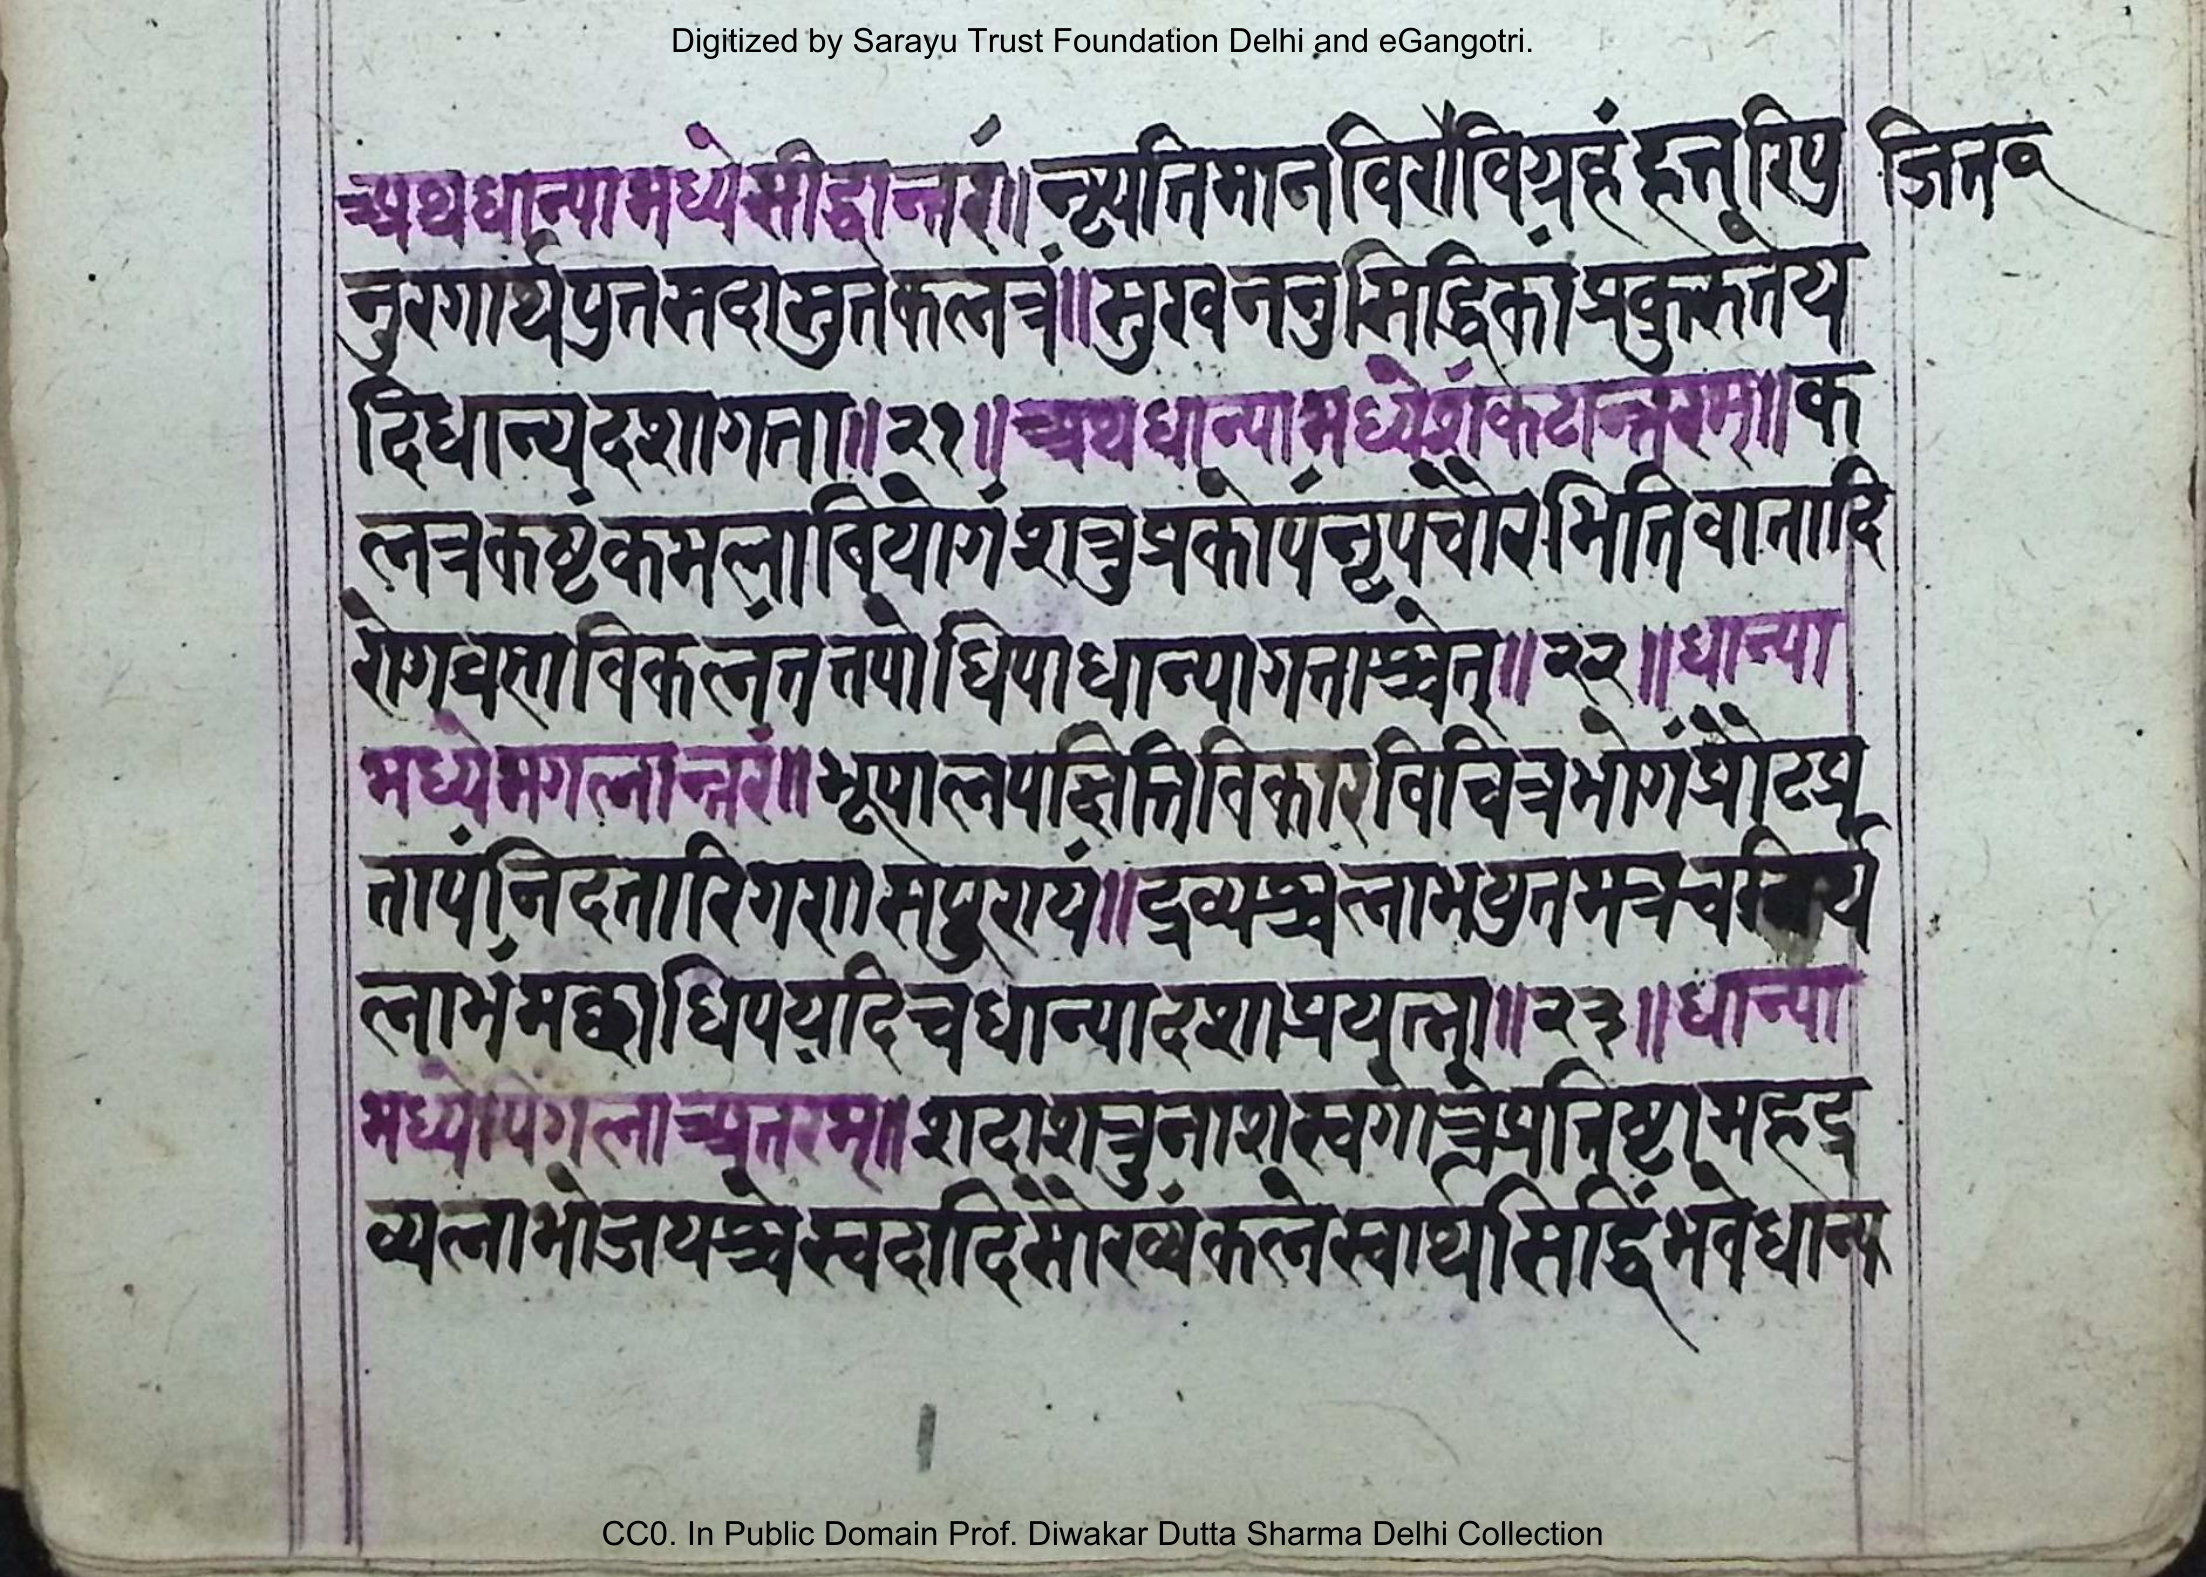 Digitized by Sarayu Trust Foundation Delhi and eGangotri.
अथधान्यामध्येसीद्धान्तरं॥ नृपतिमानविरोविग्रहं हत्तूरिपु जित॰
नुरगार्थपुत्तसदासुतकलत्रं॥ सुखननुसिद्धिकांप्रकुरुतेय
दिधान्यदशागता॥२१॥ अथधान्यामध्येशंकटान्तरम्॥ क
लत्रकष्टंकमलावियोगंशत्रुप्रकोपंनृपचौरभितिवातादि
रोग विकलंत तपोधिपाधान्यागताश्चेत्॥२२॥ धान्या
मध्येमगलान्तरं॥ भूपालप विकारविचित्रभोगंप्रौटप्र
तापंनिदतारिगणासपुरायं॥ द्रव्यश्चलाभयुतमत्रच
लाभं धिपयदिचधान्यादशाप्रयुत्ता॥२३॥ धान्या
मध्येपिंगलाअत्तरम्॥ शदाशत्रुनाशस्वगोत्रेप्रतिष्टामहद्र
व्यलाभोजयश्चेस्वदादिसौख्यंकलेस्वार्थसिद्धिंभवेधान्य
CC0. In Public Domain Prof. Diwakar Dutta Sharma Delhi Collection